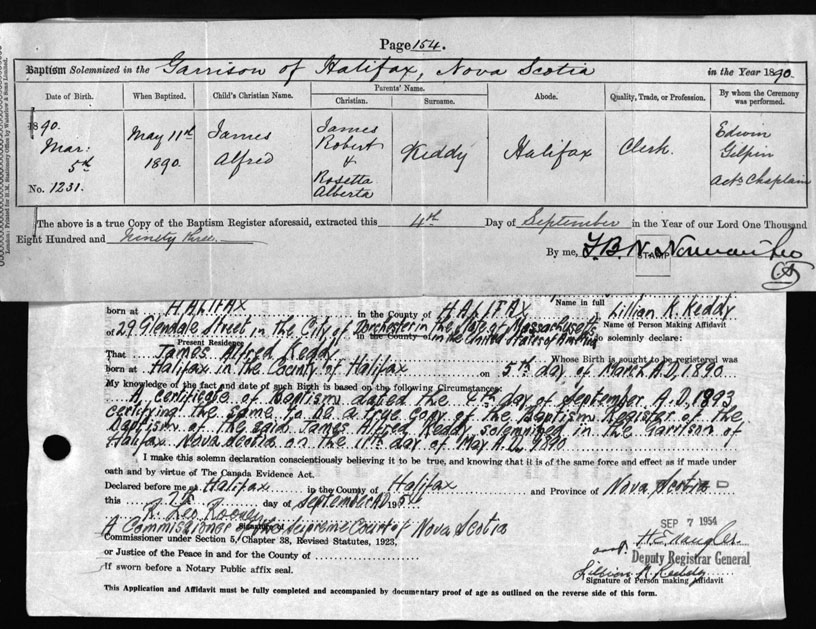 Page 154.
Baptism Solemnized in the Garrison of Halifax, Nova Scotia in the Year 1890.
Date of Birth. When Baptized. Child's Christian Name. Parents' Name. Christian. Surname. Abode. Quality, Trade, or Profession. By whom the Ceremony was performed.
1890. Mar: 5th May 11th 1890. James Alfred James Robert & Rosetta Alberta Keddy Halifax Clerk. Edwin Gilpin Actg Chaplain
No. 1231.
The above is a true Copy of the Baptism Register aforesaid, extracted this 4th Day of September in the Year of our Lord One Thousand
Eight Hundred and Ninety three.
By me,
STAMP
born at HALIFAX in the County of HALIFAX Name in full Lillian K. Keddy
of 29 Glendale Street in the City of Dorchester in the State of Massachusetts Name of Person Making Affidavit
Present Residence in the County of in the United States of America do solemnly declare:
That James Alfred Keddy Whose Birth is sought to be registered was
born at Halifax in the County of Halifax on 5th day of March A.D. 1890
My knowledge of the fact and date of such Birth is based on the following Circumstances:
A certificate of Baptism dated the 4th day of September A.D. 1893
certifying the same to be a true copy of the Baptism Register of the
baptism of the said James Alfred Keddy solemnized in the Garrison of
Halifax Nova Scotia on the 11th day of May A.D. 1890
I make this solemn declaration conscientiously believing it to be true, and knowing that it is of the same force and effect as if made under
oath and by virtue of The Canada Evidence Act.
Declared before me at Halifax in the County of Halifax and Province of Nova Scotia
this 7th day of September A.D. 1954
A Commissioner Supreme Court of Nova Scotia
Commissioner under Section 5, Chapter 38, Revised Statutes, 1923,
or Justice of the Peace in and for the County of
If sworn before a Notary Public affix seal.
SEP 7 1954
Deputy Registrar General
Lillian K. Keddy
Signature of Person making Affidavit
This Application and Affidavit must be fully completed and accompanied by documentary proof of age as outlined on the reverse side of this form.